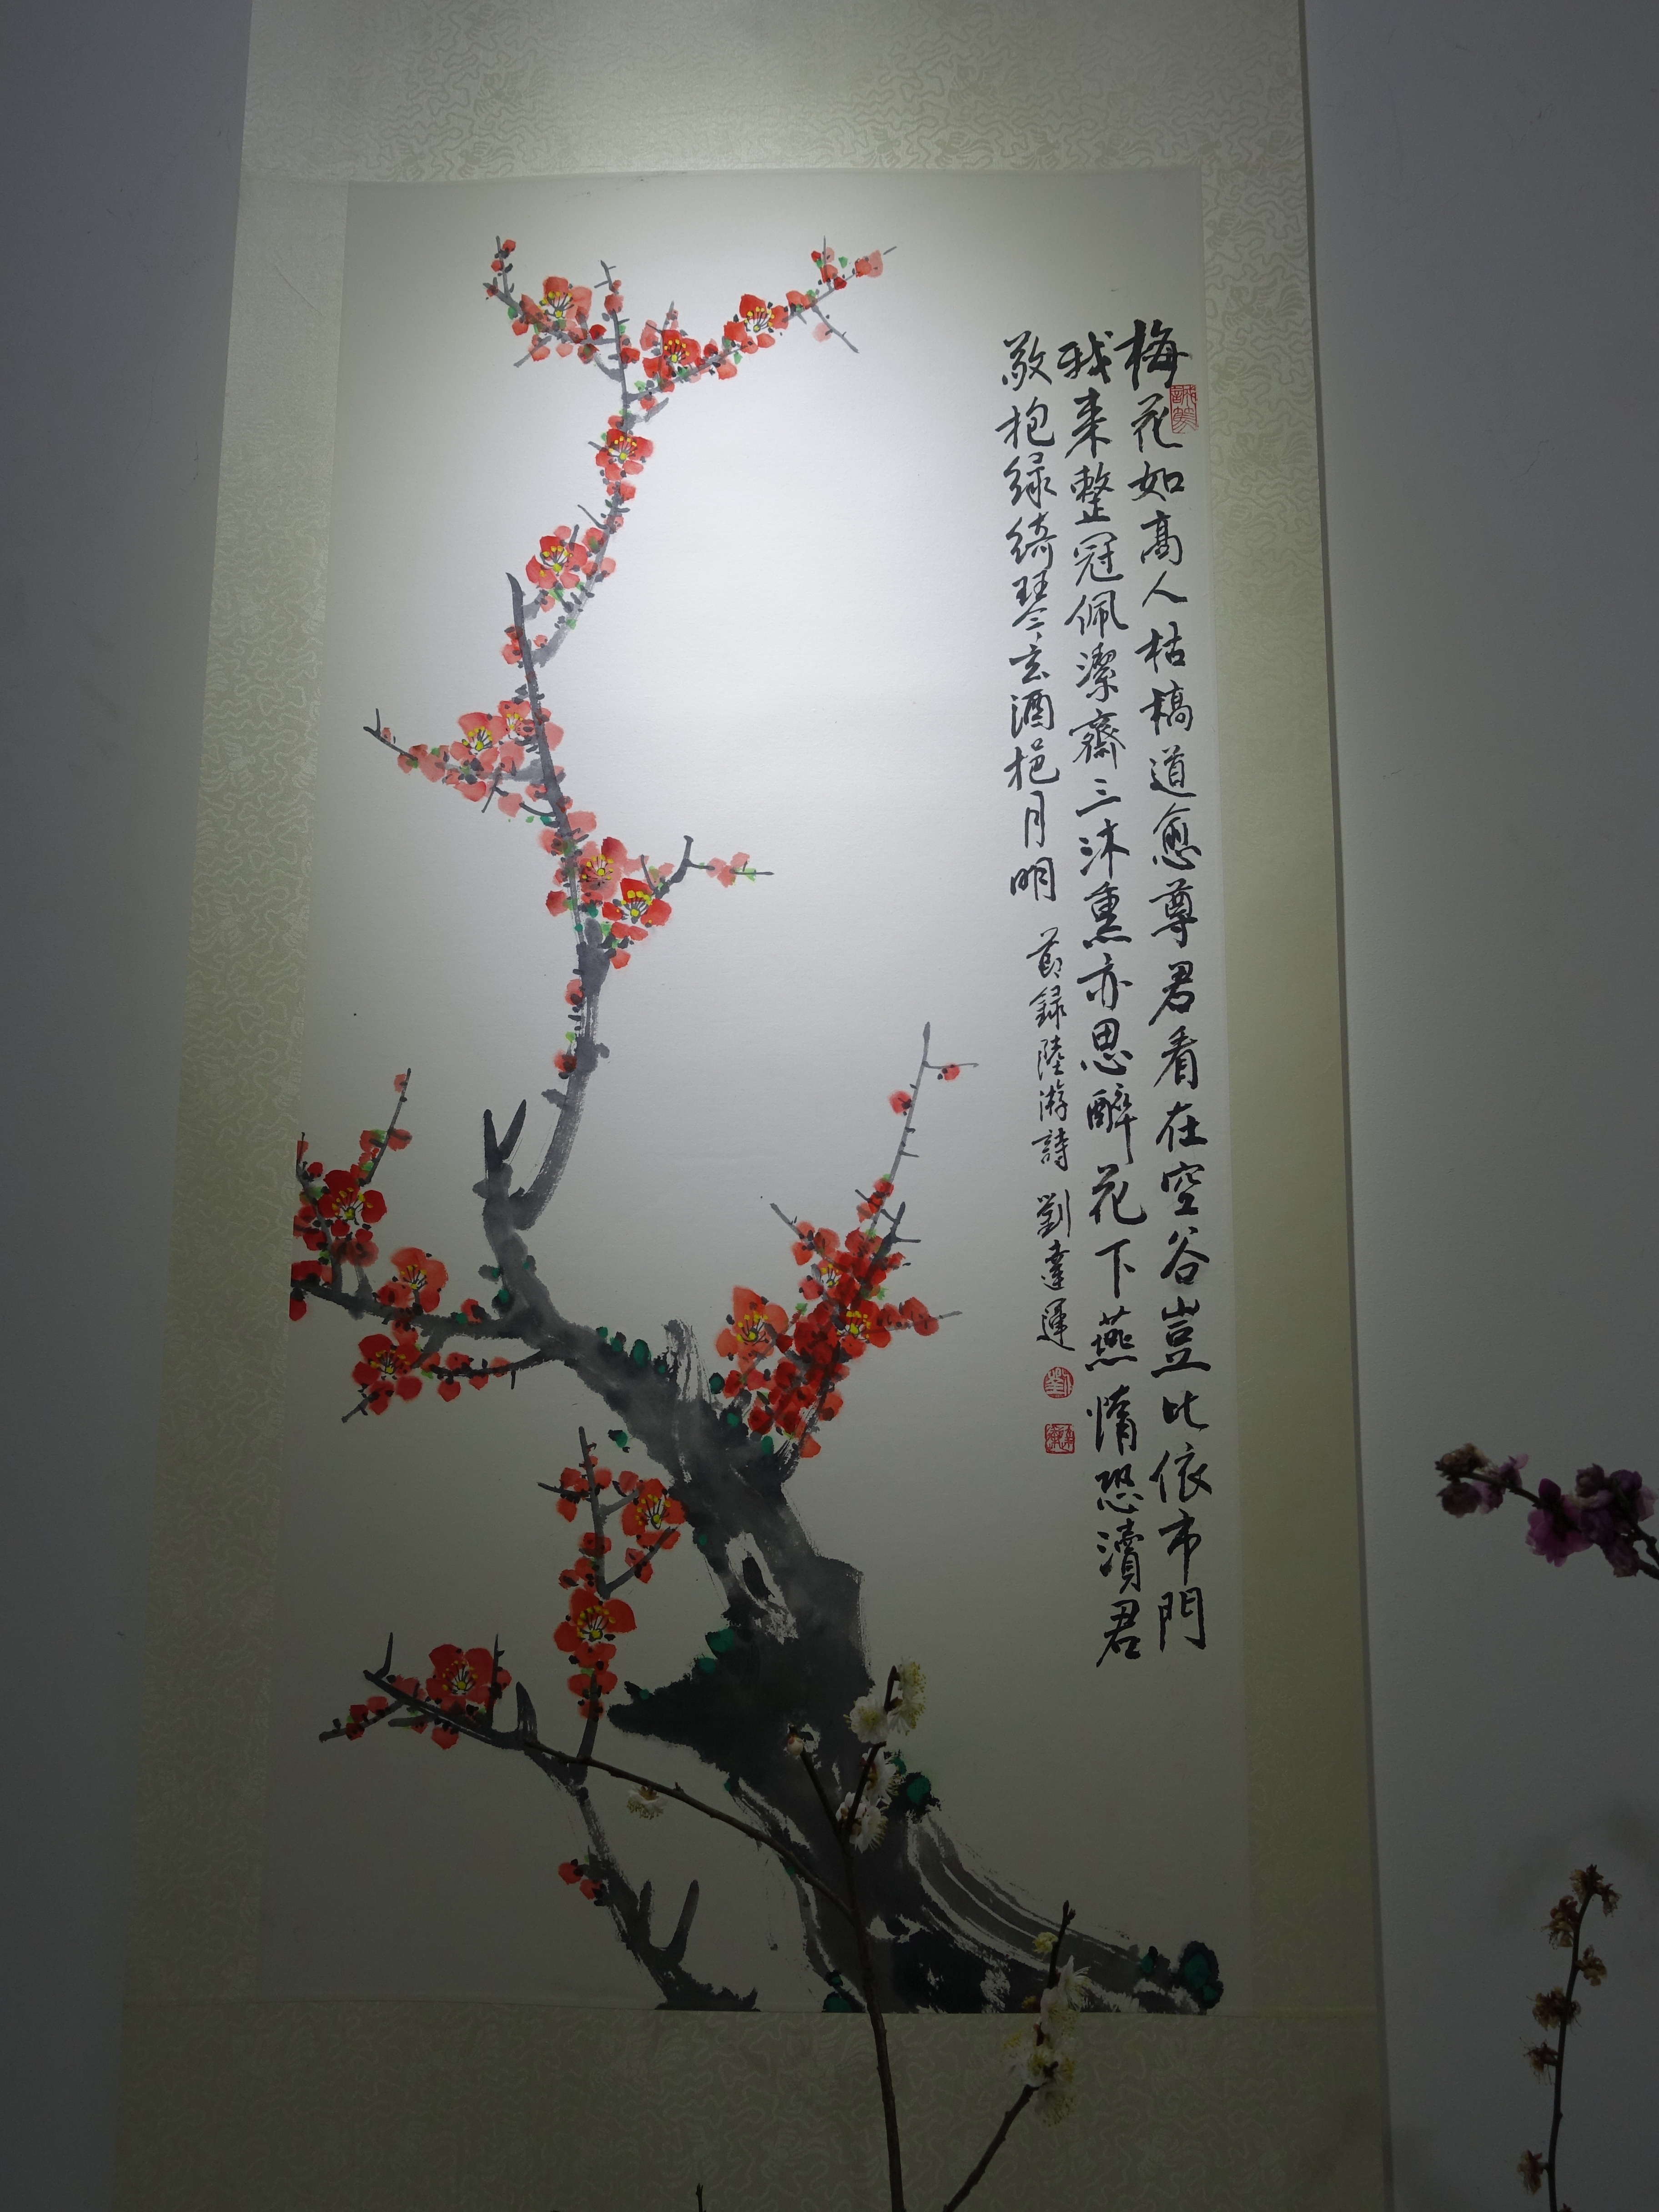 梅花如高人枯槁道愈尊君看在空谷豈比依市門
我来整冠佩潔齋三沐熏亦思醉花下燕惰恐瀆君
敬抱緑綺琴玄酒挹月明
節録陸游詩 劉達運